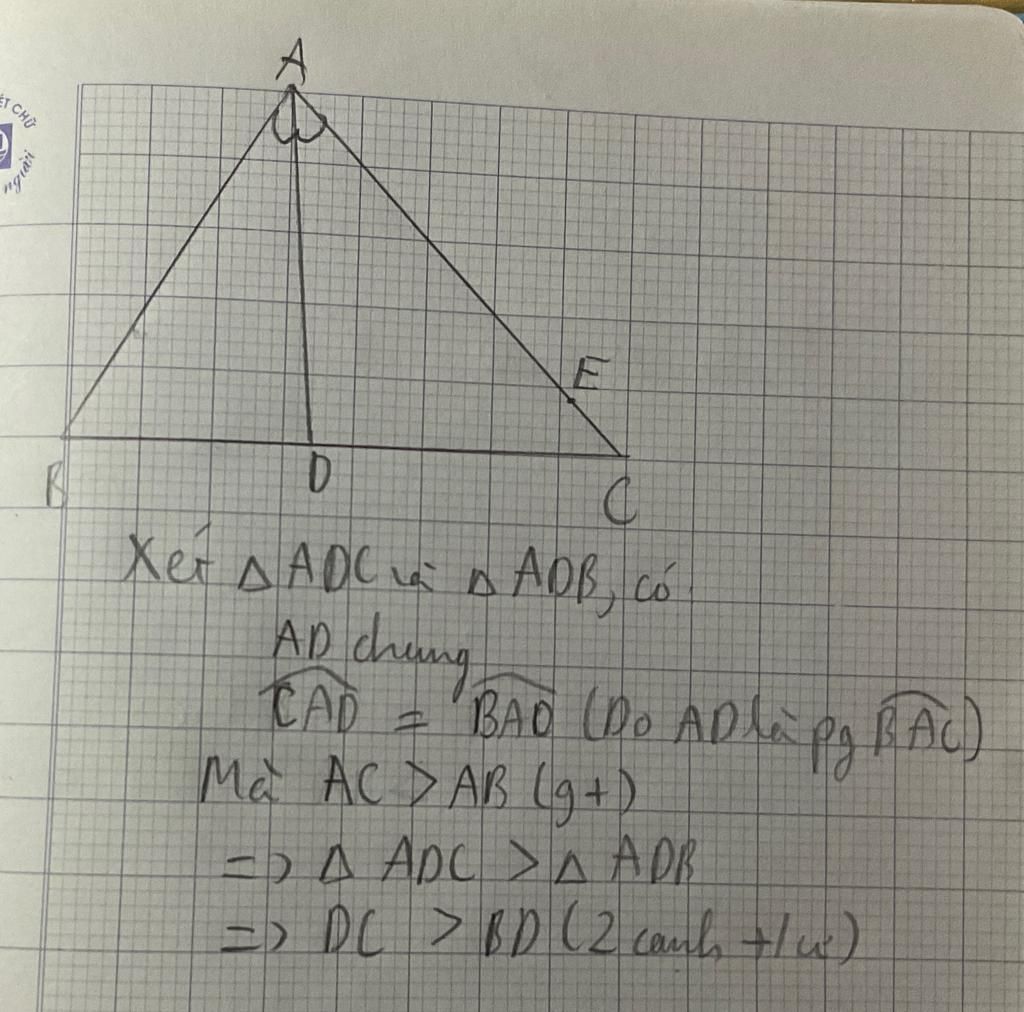 A
ẾT CHỮ
người
E
B
D
C
Xét △ADC và △ADB, có
AD chung
CAD = BAD (Do AD là pg BAC)
Mà AC > AB (gt)
=> △ ADC > △ ADB
=> DC > BD (2 cạnh t/ư)